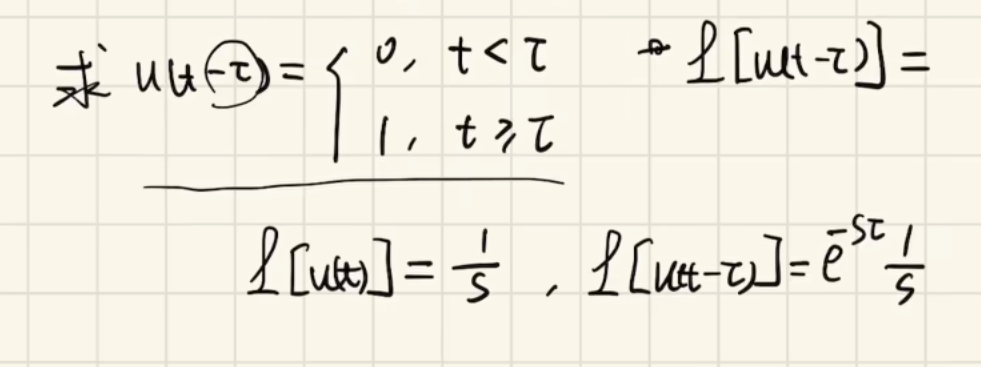 求 u(t-τ) = { 0, t < τ → ℒ[u(t-τ)] =
1, t ≥ τ
ℒ[u(t)] = 1/s , ℒ[u(t-τ)] = e^{-sτ} 1/s